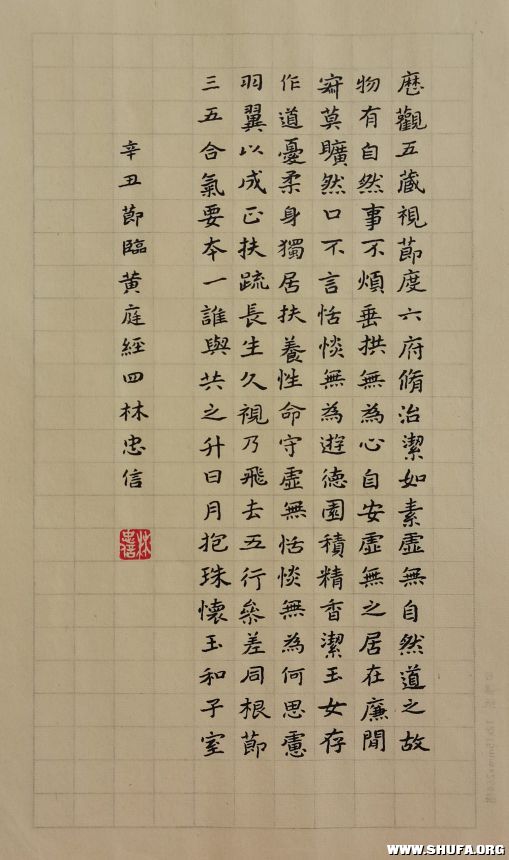 歷觀五藏視節度六府脩治潔如素虛無自然道之故
物有自然事不煩垂拱無為心自安虛無之居在廉閒
寂莫曠然口不言恬惔無為遊德園積精香潔玉女存
作道憂柔身獨居扶養性命守虛無恬惔無為何思慮
羽翼以成正扶疏長生久視乃飛去五行參差同根節
三五合氣要本一誰與共之升日月抱珠懷玉和子室
辛丑節臨黃庭經四林忠信
林忠信
WWW.SHUFA.ORG